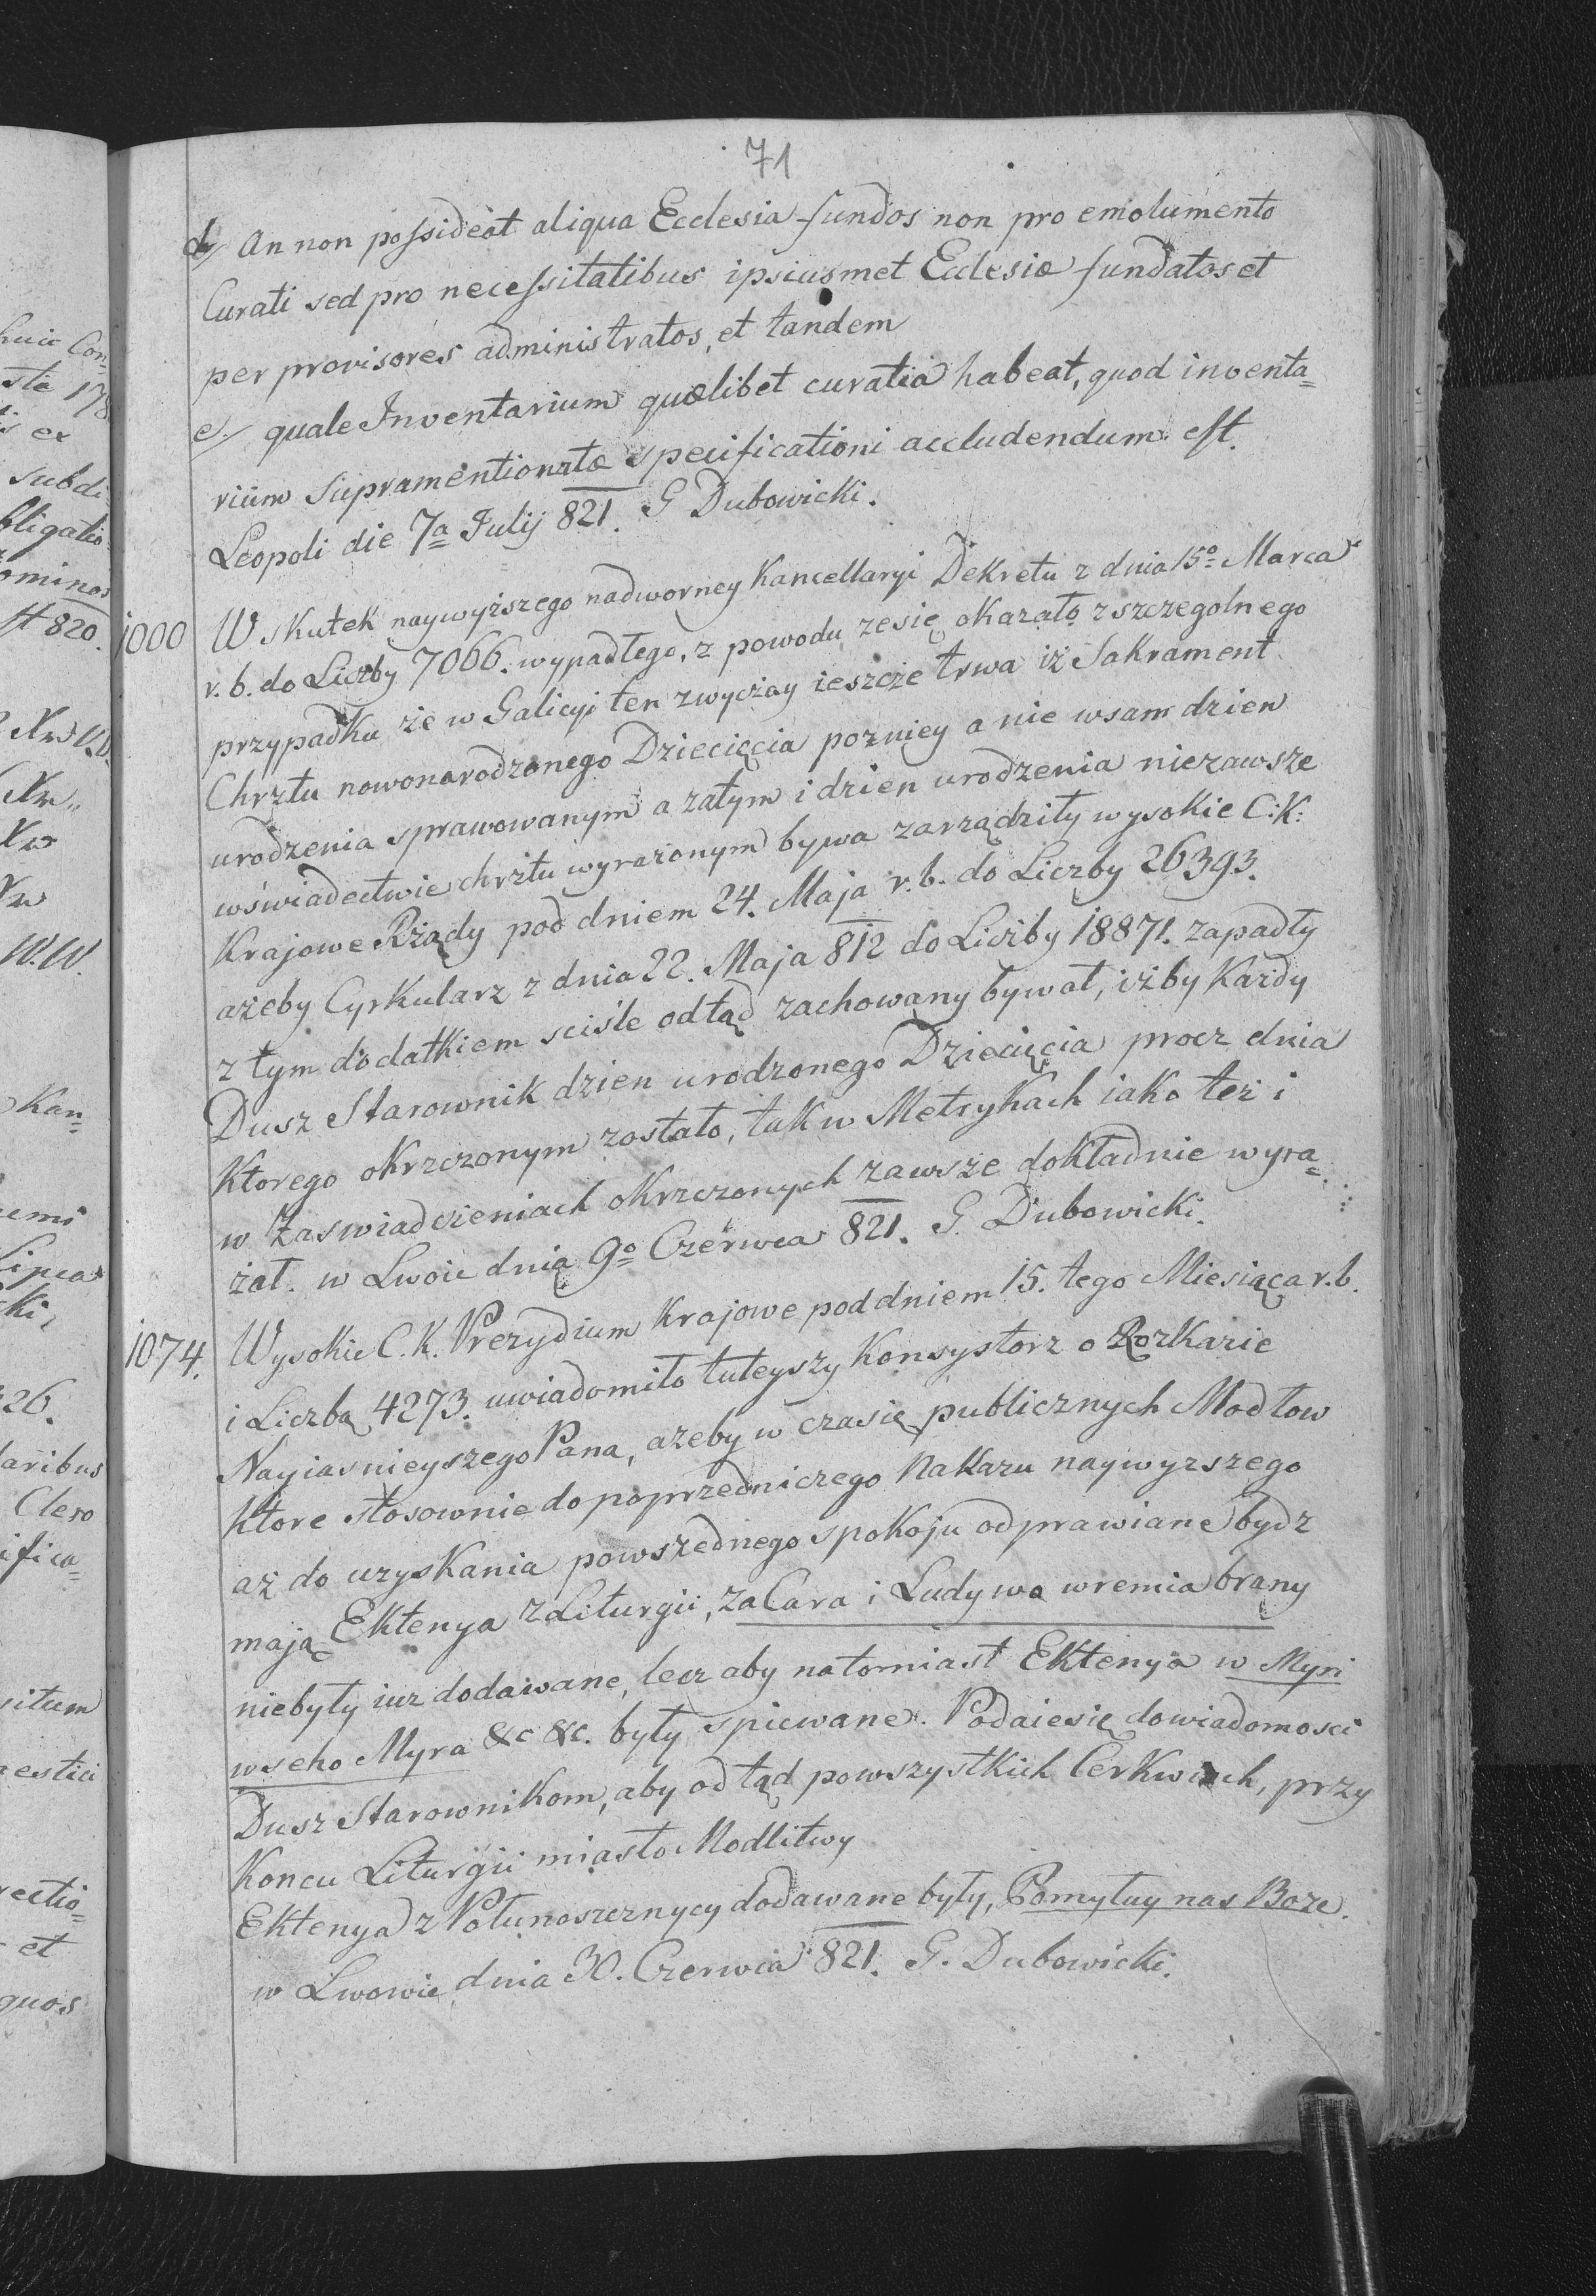 71
d/ An non possideat aliqua Ecclesia fundos non pro emolumento
Curati sed pro necessitatibus ipsiusmet Ecclesiæ fundatos et
per provisores administratos, et tandem
e/ quale Inventarium quælibet curatia habeat, quod inventa=
rium supramentionatæ specificationi accludendum est.
Leopoli die 7a Julij 821. G Dubowicki.
1000 W skutek naywyższego nadworney Kancellaryi Dekretu z dnia 15o Marca
r. b. do Liczby 7066. wypadłego, z powodu ze się okazało z szczegolnego
przypadku że w Galicyi ten zwyczay ieszcze trwa iż Sakrament
Chrztu nowonarodzonego Dziecięcia pozniey a nie wsam dzien
urodzenia sprawowanym a zatym i dzien urodzenia niezawsze
wświadectwie chrztu wyrażonym bywa zarządziły wysokie C: K:
Krajowe Rządy pod dniem 24. Maja r. b. do Liczby 26393.
ażeby Cyrkularz z dnia 22. Maja 812 do Liczby 18871. zapadły
z tym dodatkiem sciśle odtąd zachowany bywał, iżby Każdy
Dusz Starownik dzien urodzonego Dziecięcia procz dnia
Ktorego okrzczonym zostało, tak w Metrykach iako też i
w Zaswiadczeniach okrzczonych zawsze dokładnie wyra=
żał. w Lwoie dnia 9o Czerwca 821. G. Dubowicki.
1074. Wysokie C. K. Prezydium Krajowe pod dniem 15. tego Miesiąca r. b.
i Liczbą 4273. uwiadomiło tuteyszy Konsystorz o Rozkazie
Nayiasnieyszego Pana, ażeby w czasie publicznych Modłow
Ktore stosownie do poprzedniczego Nakazu naywyzszego
aż do uzyskania powszednego spokoju odprawiane bydz
mają Ektenya z Liturgii, za Cara i Ludy wa wremia brany
niebyły iuz dodaiwane, lecz aby natomiast Ektenya w Myri
wseho Myra &c &c. były spiewane. Podaie się dowiadomosci
Dusz Starownikom, aby odtąd powszystkich Cerkwiach, przy
Koncu Liturgii miasto Modlitwy
Ektenya z Połunoszcznycy dodawane były, Pomyłuy nas Boze.
w Lwowie dnia 30. Czerwca 821. G. Dubowicki.